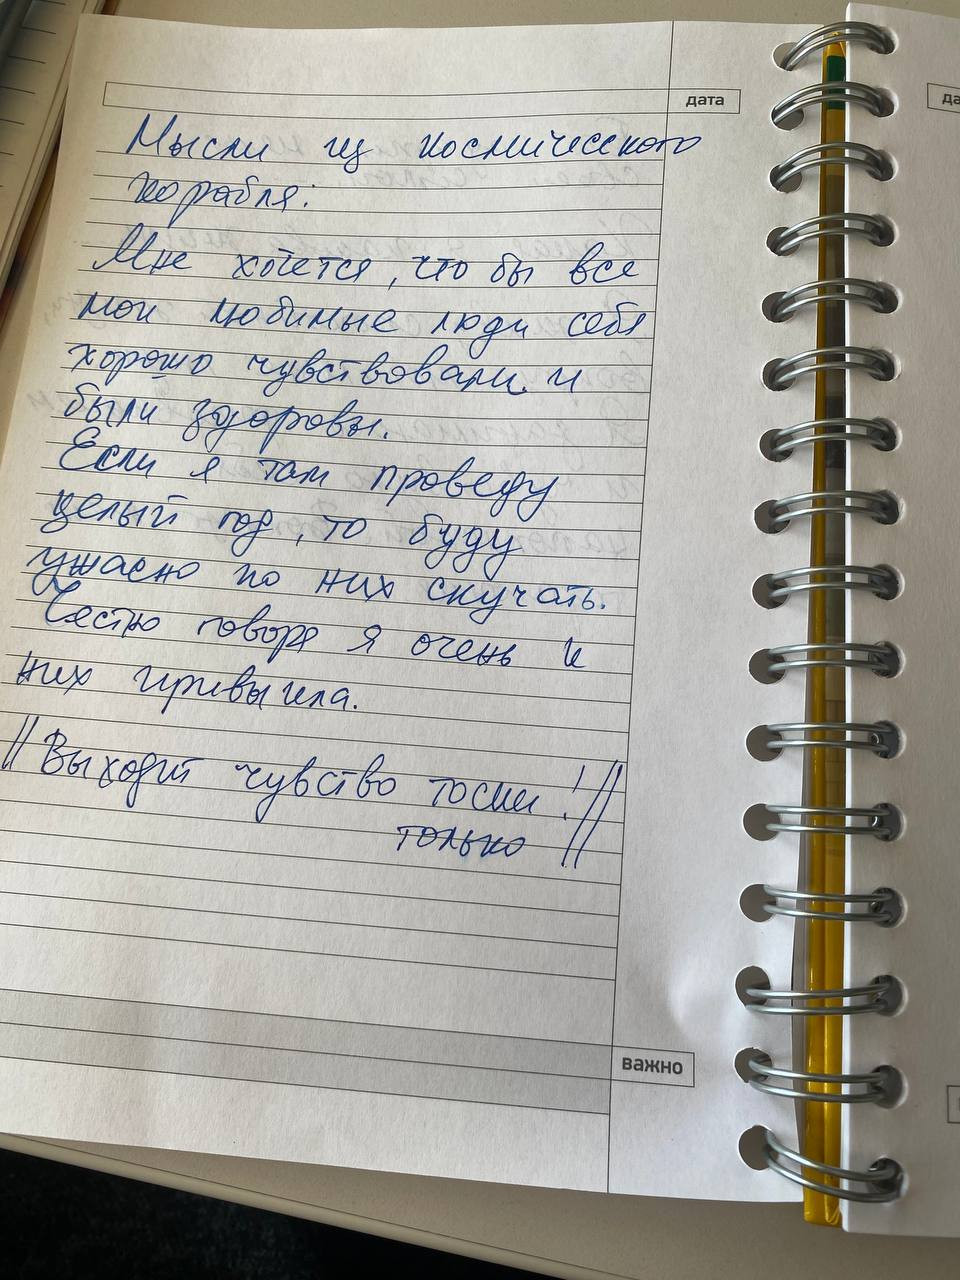 дата
Мысли из космического
корабля:
Мне хочется, что бы все
мои любимые люди себя
хорошо чувствовали и
были здоровы.
Если я там проведу
целый год, то буду
ужасно по них скучать.
Честно говоря я очень к
них привыкла.
// Выходит чувство тоски!//
только
важно